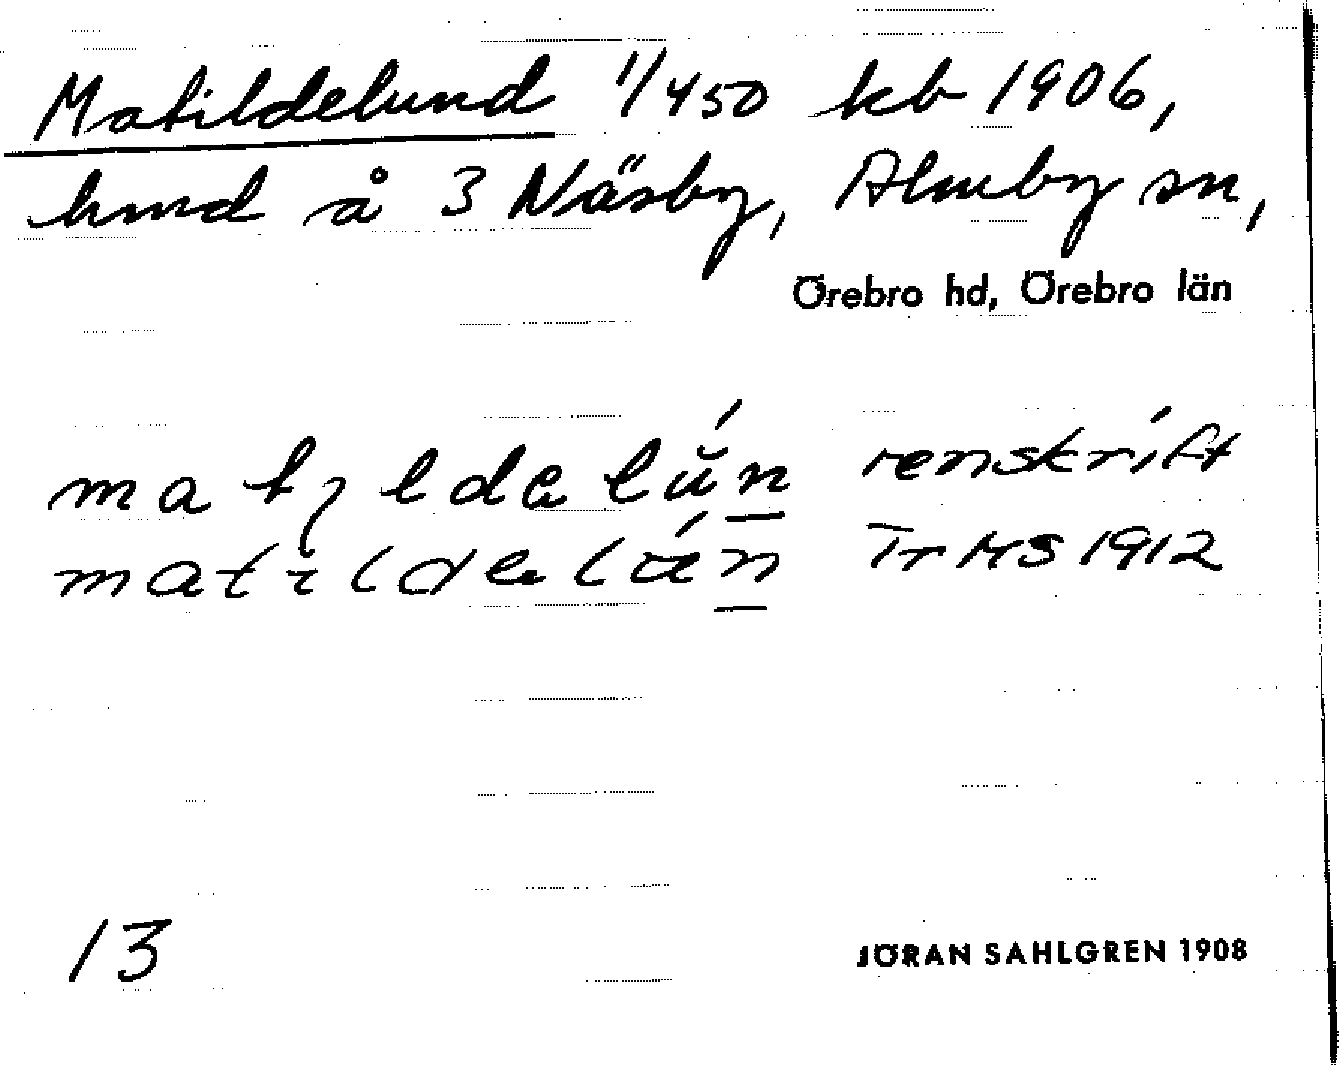 Matildelund 1/450 kb 1906,
hmd å 3 Näsby, Almby sn,
Örebro hd, Örebro län
matıldəlŭ́n renskrift
matıldelún Tr MS 1912
13
JÖRAN SAHLGREN 1908